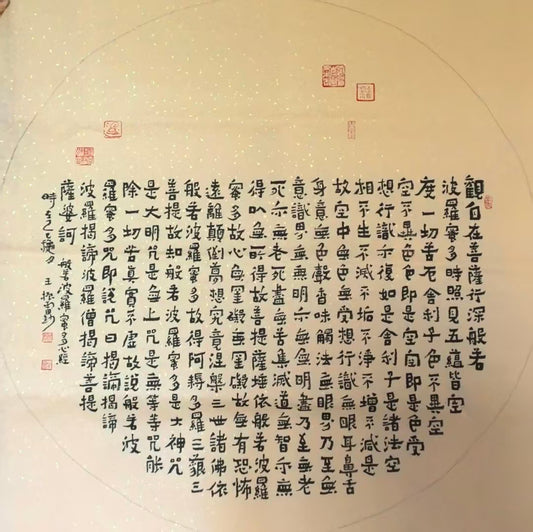 觀自在菩薩行深般若
波羅蜜多時照見五蘊皆空
度一切苦厄舍利子色不異空
空不異色色即是空空即是色受
想行識亦復如是舍利子是諸法空
相不生不滅不垢不淨不增不減是
故空中無色無受想行識無眼耳鼻舌
身意無色聲香味觸法無眼界乃至無
意識界無無明亦無無明盡乃至無老
死亦無老死盡無苦集滅道無智亦無
得以無所得故菩提薩埵依般若波羅
蜜多故心無罣礙無罣礙故無有恐怖
遠離顛倒夢想究竟涅槃三世諸佛依
般若波羅蜜多故得阿耨多羅三藐三
菩提故知般若波羅蜜多是大神咒
是大明咒是無上咒是無等等咒能
除一切苦真實不虛故說般若波
羅蜜多咒即說咒曰揭諦揭諦
波羅揭諦波羅僧揭諦菩提
薩婆訶
般若波羅蜜多心經